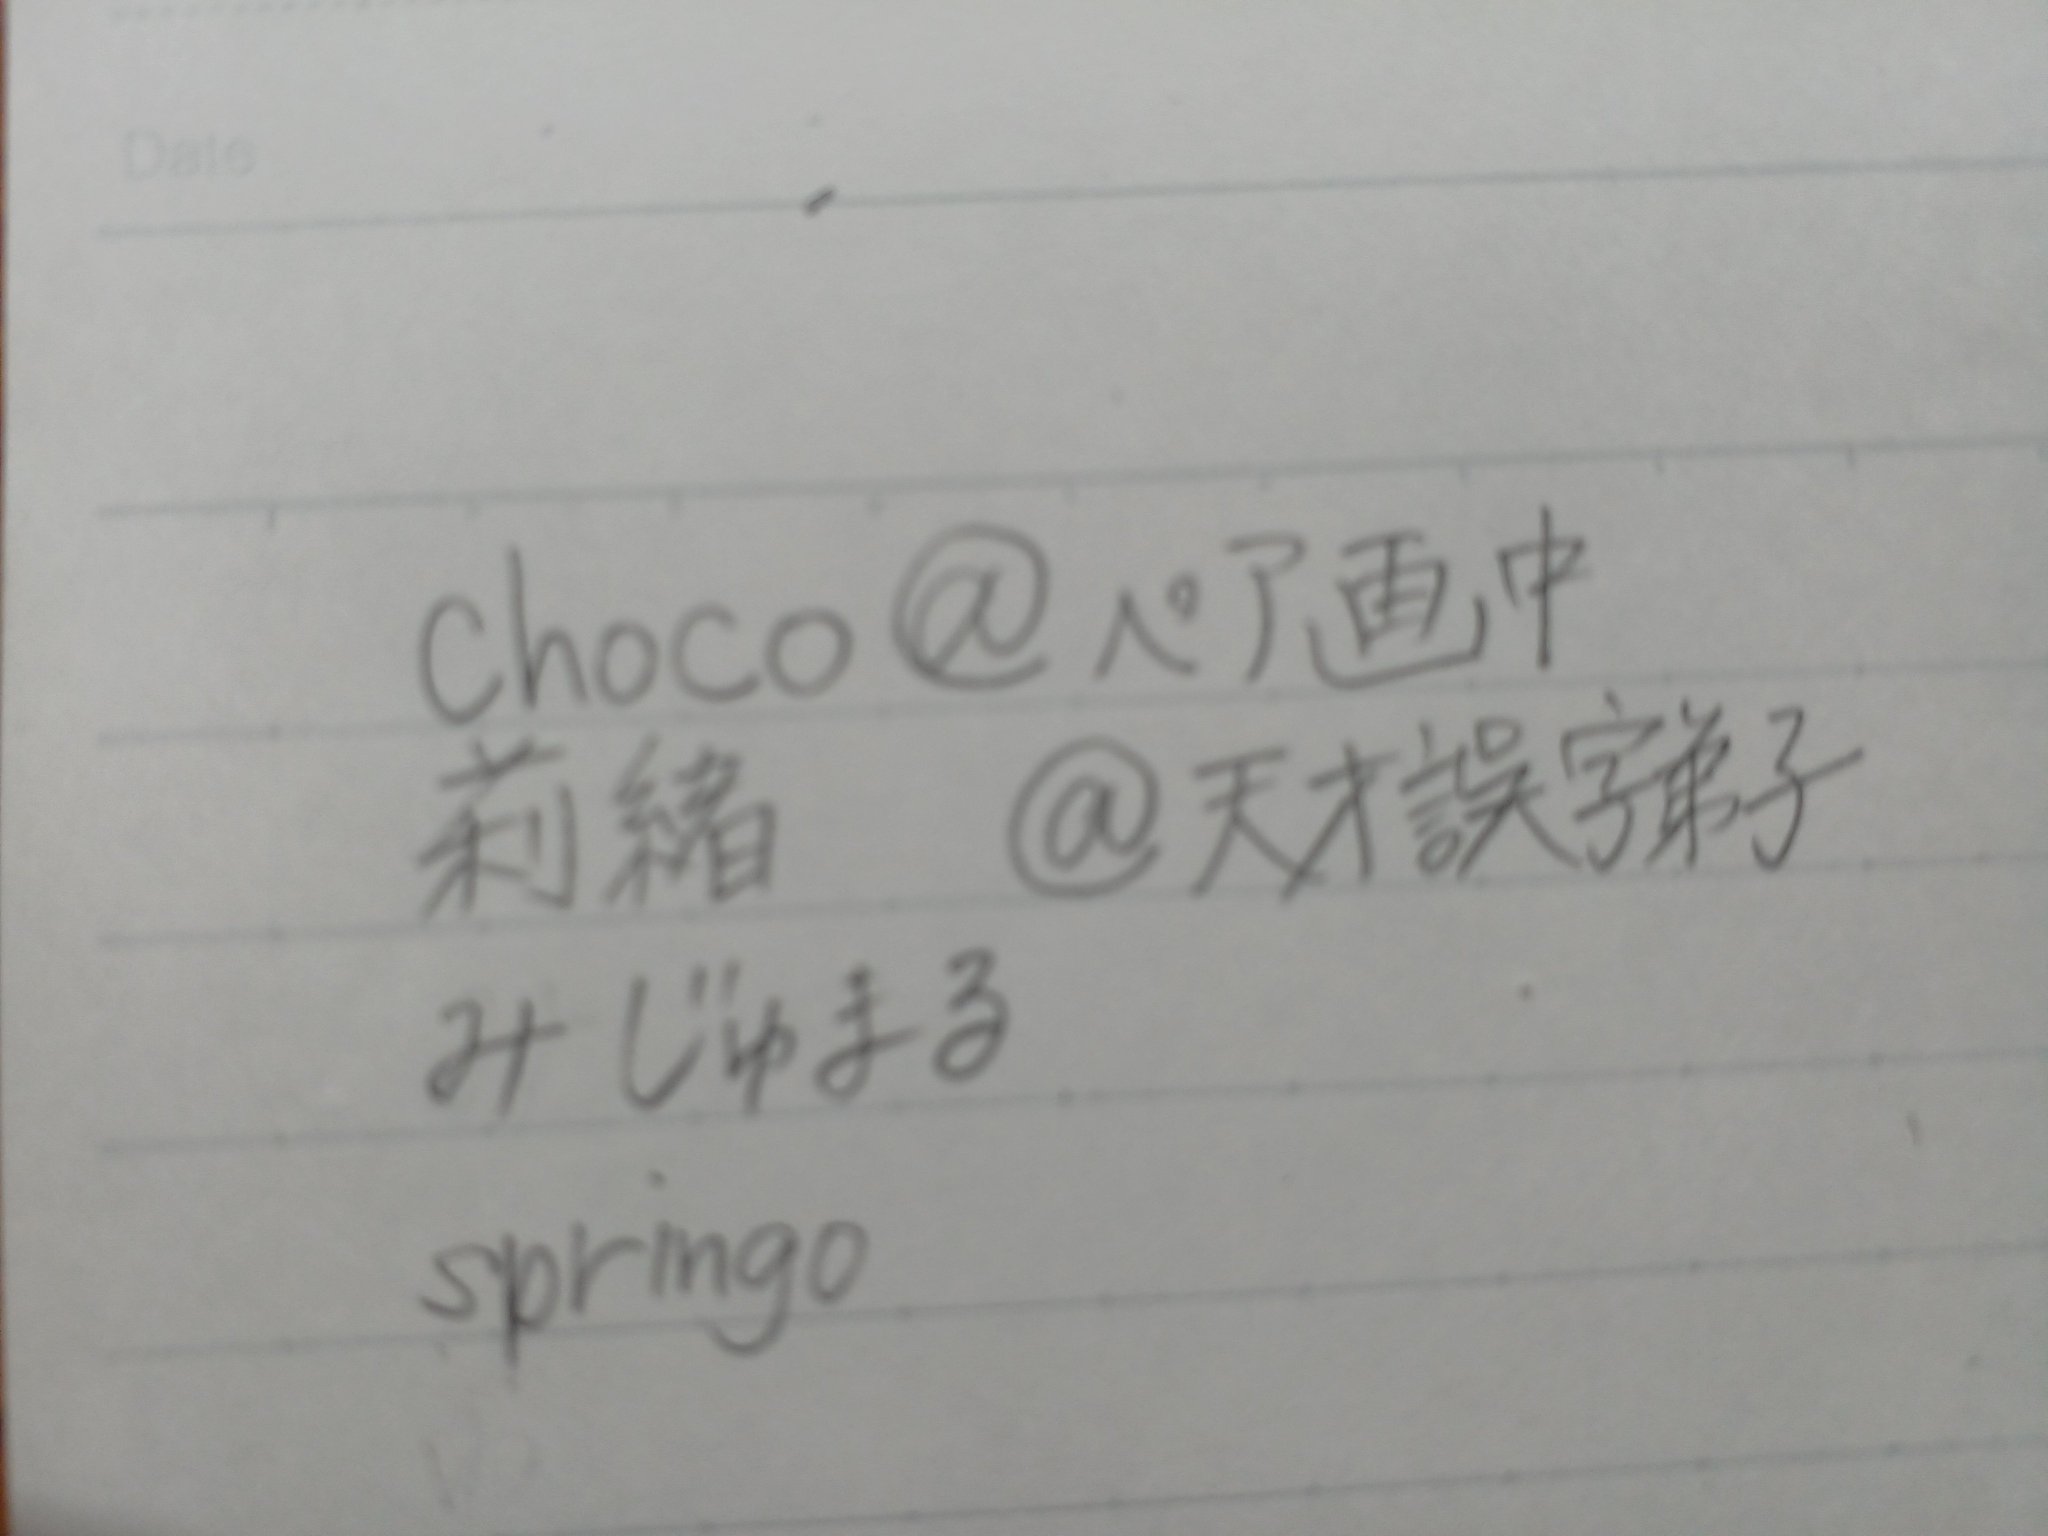 Date
choco@ペア画中
莉緒 @天才誤字弟子
みじゅまる
springo